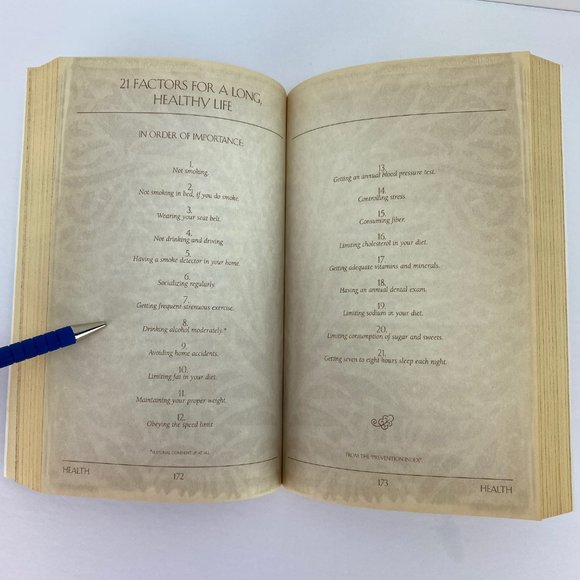 21 FACTORS FOR A LONG,
HEALTHY LIFE
IN ORDER OF IMPORTANCE:
1.
Not smoking.
2.
Not smoking in bed, if you do smoke.
3.
Wearing your seat belt.
4.
Not drinking and driving
5.
Having a smoke detector in your home.
6.
Socializing regularly.
7.
Getting frequent strenuous exercise.
8.
Drinking alcohol moderately.*
9.
Avoiding home accidents.
10.
Limiting fat in your diet.
11.
Maintaining your proper weight.
12.
Obeying the speed limit
COMMENT: AT ALL
HEALTH
172
13.
Getting an annual blood pressure test.
14.
Controlling stress.
15.
Consuming fiber.
16.
Limiting cholesterol in your diet.
17.
Getting adequate vitamins and minerals.
18.
Having an annual dental exam.
19.
Limiting sodium in your diet.
20.
Limiting consumption of sugar and sweets.
21.
Getting seven to eight hours sleep each night.
FROM THE "PREVENTION INDEX".
173
HEALTH